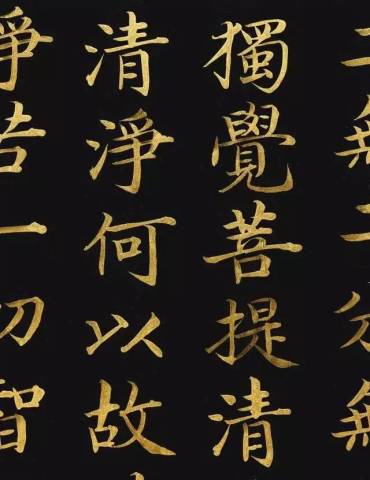 二無二分無
獨覺菩提清
清淨何以故
淨若一切智